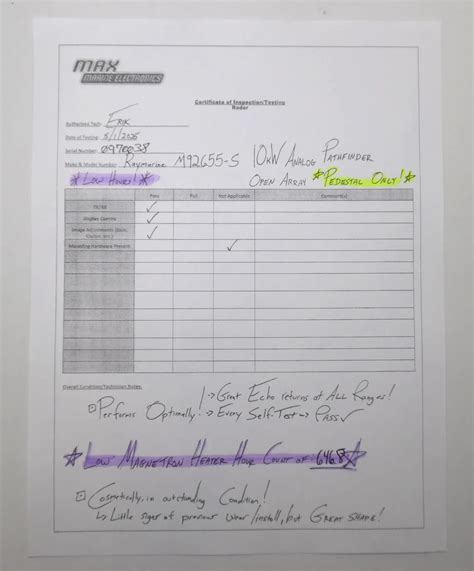 MAX
MARINE ELECTRONICS
Certificate of Inspection/Testing
Radar
Authorized Tech: Erik
Date of Testing: 5/1/2025
Serial Number: 0970038
Make & Model Number: Raymarine M92655-S 10kW Analog Pathfinder
*Low Hours!* Open Array *Pedestal Only!*
Pass Fail Not Applicable Comment(s)
TX/RX ✓
Display Comms ✓
Image Adjustments (Gain, ✓
Mounting Hardware Present ✓
Overall Condition/Technician Notes:
→ Great Echo returns at ALL Ranges!
Performs Optimally! → Every Self-Test → Pass✓
☆ Low Magnetron Heater Hour Count of: 646.8 ☆
Cosmetically, in outstanding Condition!
↳ Little signs of previous wear/install, but GREAT SHAPE!